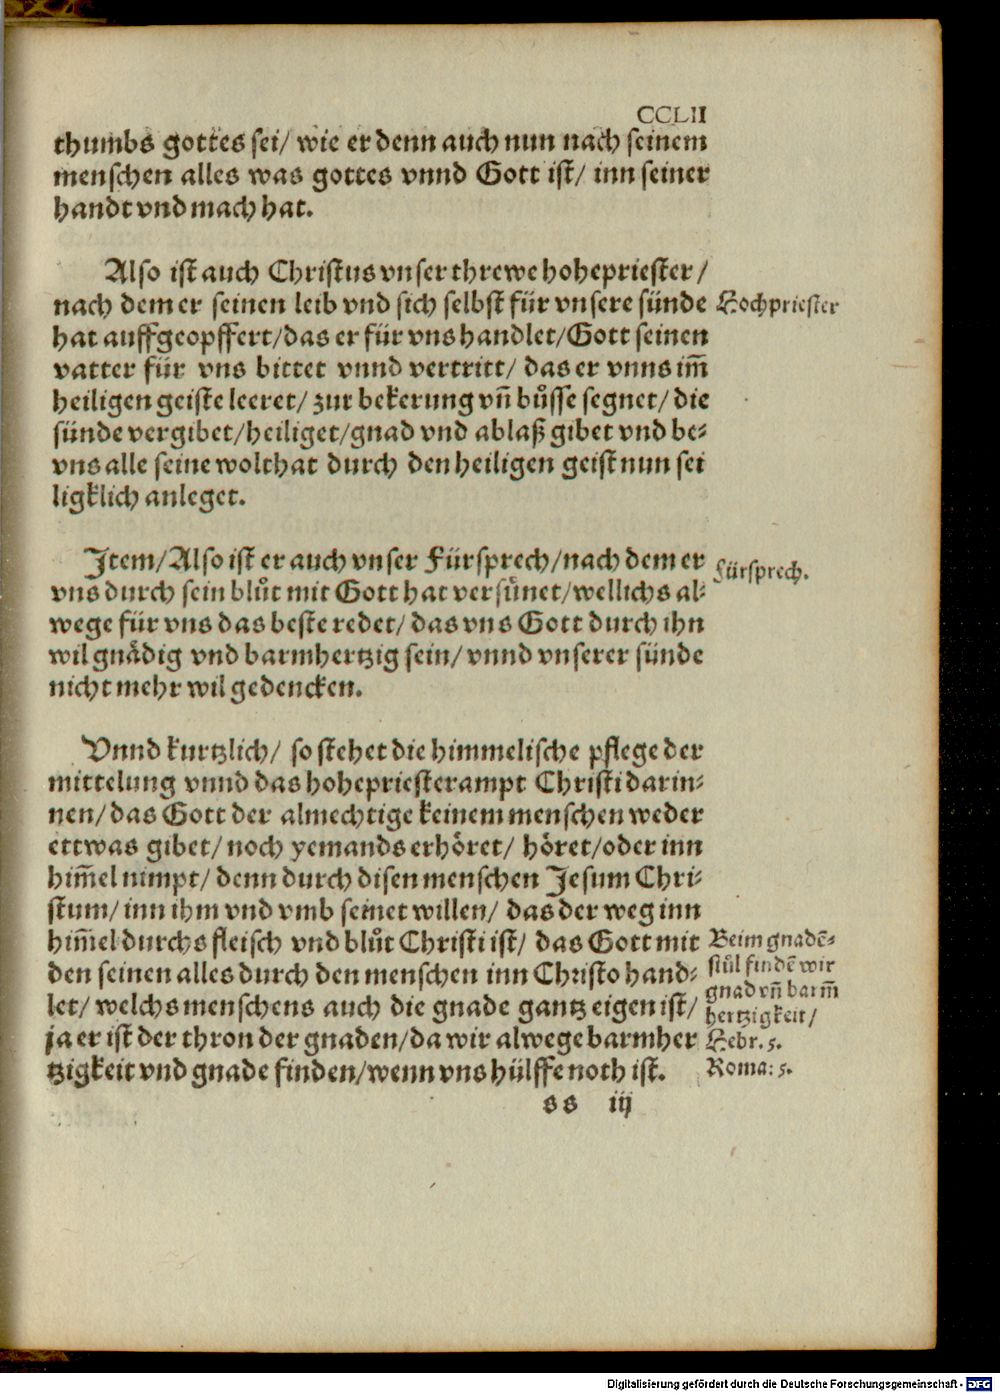 CCLII
thumbs gottes sei/ wie er denn auch nun nach seinem
menschen alles was gottes vnnd Gott ist/ inn seiner
handt vnd mach hat.
Also ist auch Christus vnser threwe hohepriester/
nach dem er seinen leib vnd sich selbst für vnsere sünde
Hochpriester
hat auffgeopffert/das er für vns handlet/Gott seinen
vatter für vns bittet vnnd vertritt/ das er vnns im̄
heiligen geiste leeret/ zur bekerung vn̄ bůsse segnet/ die
sünde vergibet/heiliget/gnad vnd ablaß gibet vnd be⸗
vns alle seine wolthat durch den heiligen geist nun sei
ligklich anleget.
Jtem/Also ist er auch vnser Fürsprech/nach dem er
Fürsprech.
vns durch sein blůt mit Gott hat versůnet/wellichs al⸗
wege für vns das beste redet/ das vns Gott durch ihn
wil gnådig vnd barmhertzig sein/ vnnd vnserer sünde
nicht mehr wil gedencken.
Vnnd kurtzlich/ so stehet die himmelische pflege der
mittelung vnnd das hohepriesterampt Christi darin⸗
nen/ das Gott der almechtige keinem menschen weder
ettwas gibet/ noch yemands erhöret/ höret/oder inn
him̄el nimpt/ denn durch disen menschen Jesum Chri⸗
stum/ inn ihm vnd vmb seinet willen/ das der weg inn
him̄el durchs fleisch vnd blůt Christi ist/ das Gott mit
Beim gnadē⸗
den seinen alles durch den menschen inn Christo hand⸗
stůl findē wir
let/ welchs menschens auch die gnade gantz eigen ist/
gnad vn̄ barm̄
hertzigkeit/
ja er ist der thron der gnaden/da wir alwege barmher
Hebr. 5.
tzigkeit vnd gnade finden/wenn vns hülffe noth ist.
Roma: 5.
ss iij
Digitalisierung gefördert durch die Deutsche Forschungsgemeinschaft - DFG